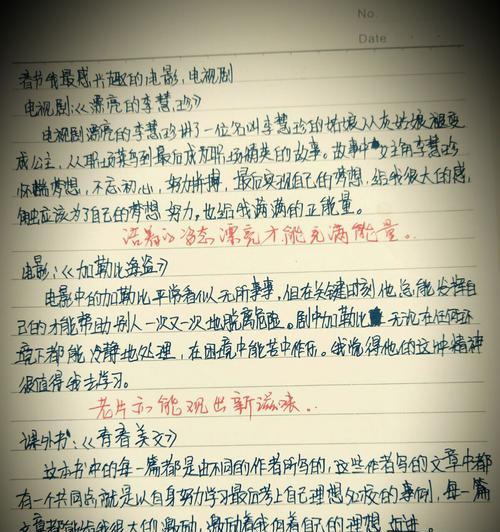 No.
Date
春节我最感兴趣的电影,电视剧
电视剧:《漂亮的李慧珍》
电视剧漂亮的李慧珍讲了一位名叫李慧珍的姑娘从灰姑娘蜕变
成公主,从职场菜鸟到最后成为职场精英的故事。故事中女主角李慧珍
怀揣梦想,不忘初心,努力拼搏,最后实现自己的梦想,给我很大的感
触应该为了自己的梦想努力。也给我满满的正能量。
活着的姿态漂亮才能充满能量。
电影:《加勒比海盗》
电影中的加勒比平常看似无所事事,但在关键时刻他总能发挥自
己的才能帮助别人一次又一次地脱离危险。剧中加勒比无论在任何环
境下都能冷静地处理,在困境中能苦中作乐。我觉得他的这种精神
很值得我去学习。
老片亦能观出新滋味。
课外书:《青春美文》
这本书中的每一篇都是由不同的作者所写的,这些作者写的文章中都
有一个共同点就是以自身努力学习最后考上自己理想的事例,每一篇
文章都能给我很大的激励,激励着我向着自己的理想